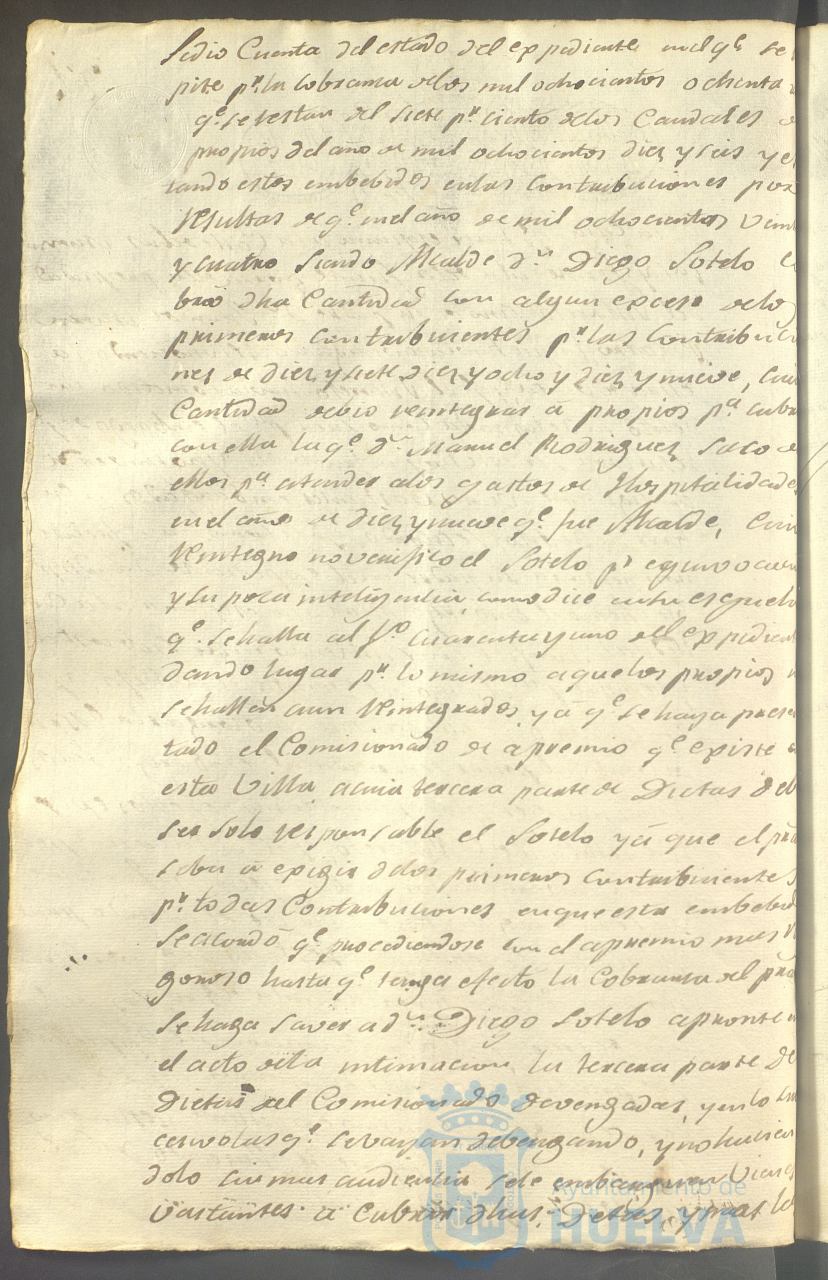 Sedio Cuenta del estado del expediente en el q.e se
pite p.r la Cobranza de los mil ochocientos ochenta
q.e se restan del siete p.r ciento de los Caudales
propios del año de mil ochocientos diez y seis y es
tando estos embebidos en las Contribuciones por
resultas de q.e en el año de mil ochocientos vein
y cuatro siendo Alcalde d.n Diego Sotelo co
bró dha Cantidad con algun exceso de los
primeros contribuientes p.r las Contribucio
nes de diez y siete diez y ocho y diez y nueve, cuia
Cantidad debio reintegrar á propios p.a cubrir
con ella la q.e d.n Manuel Rodriguez saco de
ellos p.a atender a los gastos de Hospitalidades
en el año de diez y nueve q.e fue Alcalde, cuio
reintegro no verifico el Sotelo p.r equivocacion
y su poca inteligencia, como dice en su esquela
q.e se halla al f.o cuarenta y uno del expediente
dando lugar p.r lo mismo a que los propios no
se hallen aun reintegrados, y á q.e se haya presen
tado el Comisionado de apremio q.e existe en
esta Villa a cuia tercera parte de Dietas deb
ser solo responsable el Sotelo ya que el pral
se ba á exigir de los primeros contribuientes
p.r todas Contribuciones en que esta embebido
se acordó q.e procediendose con el apremio mas ri
goroso hasta q.e tenga efecto la Cobranza del pral
se haga saver a d.n Diego Sotelo apronte en
el acto de la intimacion la tercera parte de
Dietas del Comisionado devengadas, y en lo su
cesivo las q.e se vayan debengando, y no hacien
dolo sin mas audiencia se le embarguen Vienes
vastantes á Cubrir dhas Dietas, y mas la
Ayuntamiento de
HUELVA